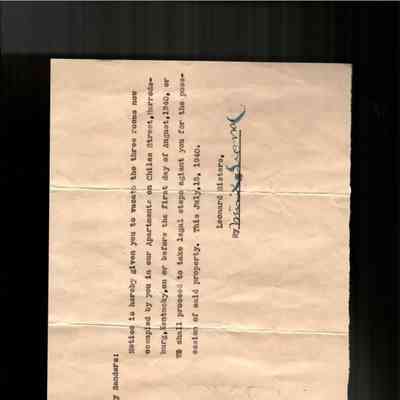 y Sanders:
Notice is hereby given you to vacate the three rooms now
occupied by you in our Apartments on Chiles Street,Harrods-
burg,Kentucky,on or before the first day of August,1940, or
we shall proceed to take legal steps agient you for the poss-
ession of said property. This July,15, 1940.
Leonard Sisters,
By